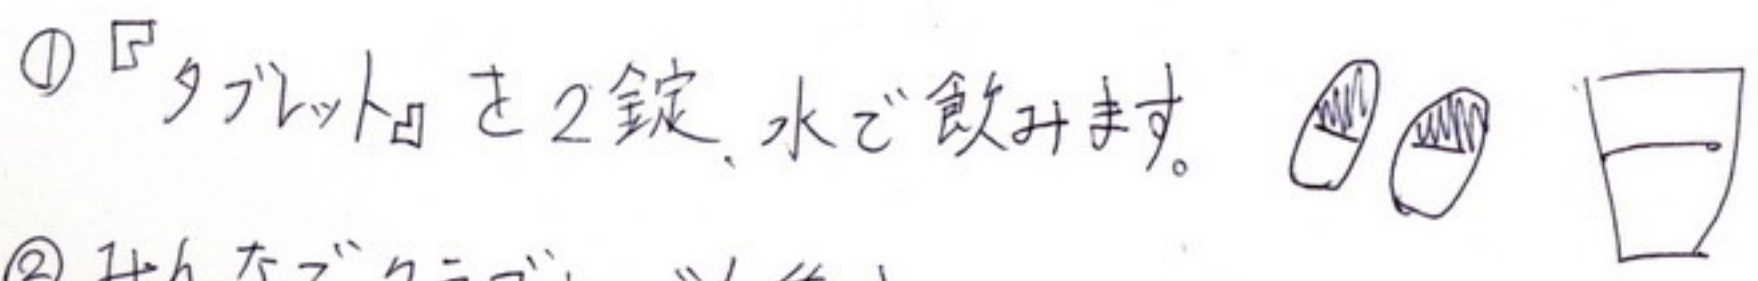 ①『タブレット』を2錠、水で飲みます。
②みんなで